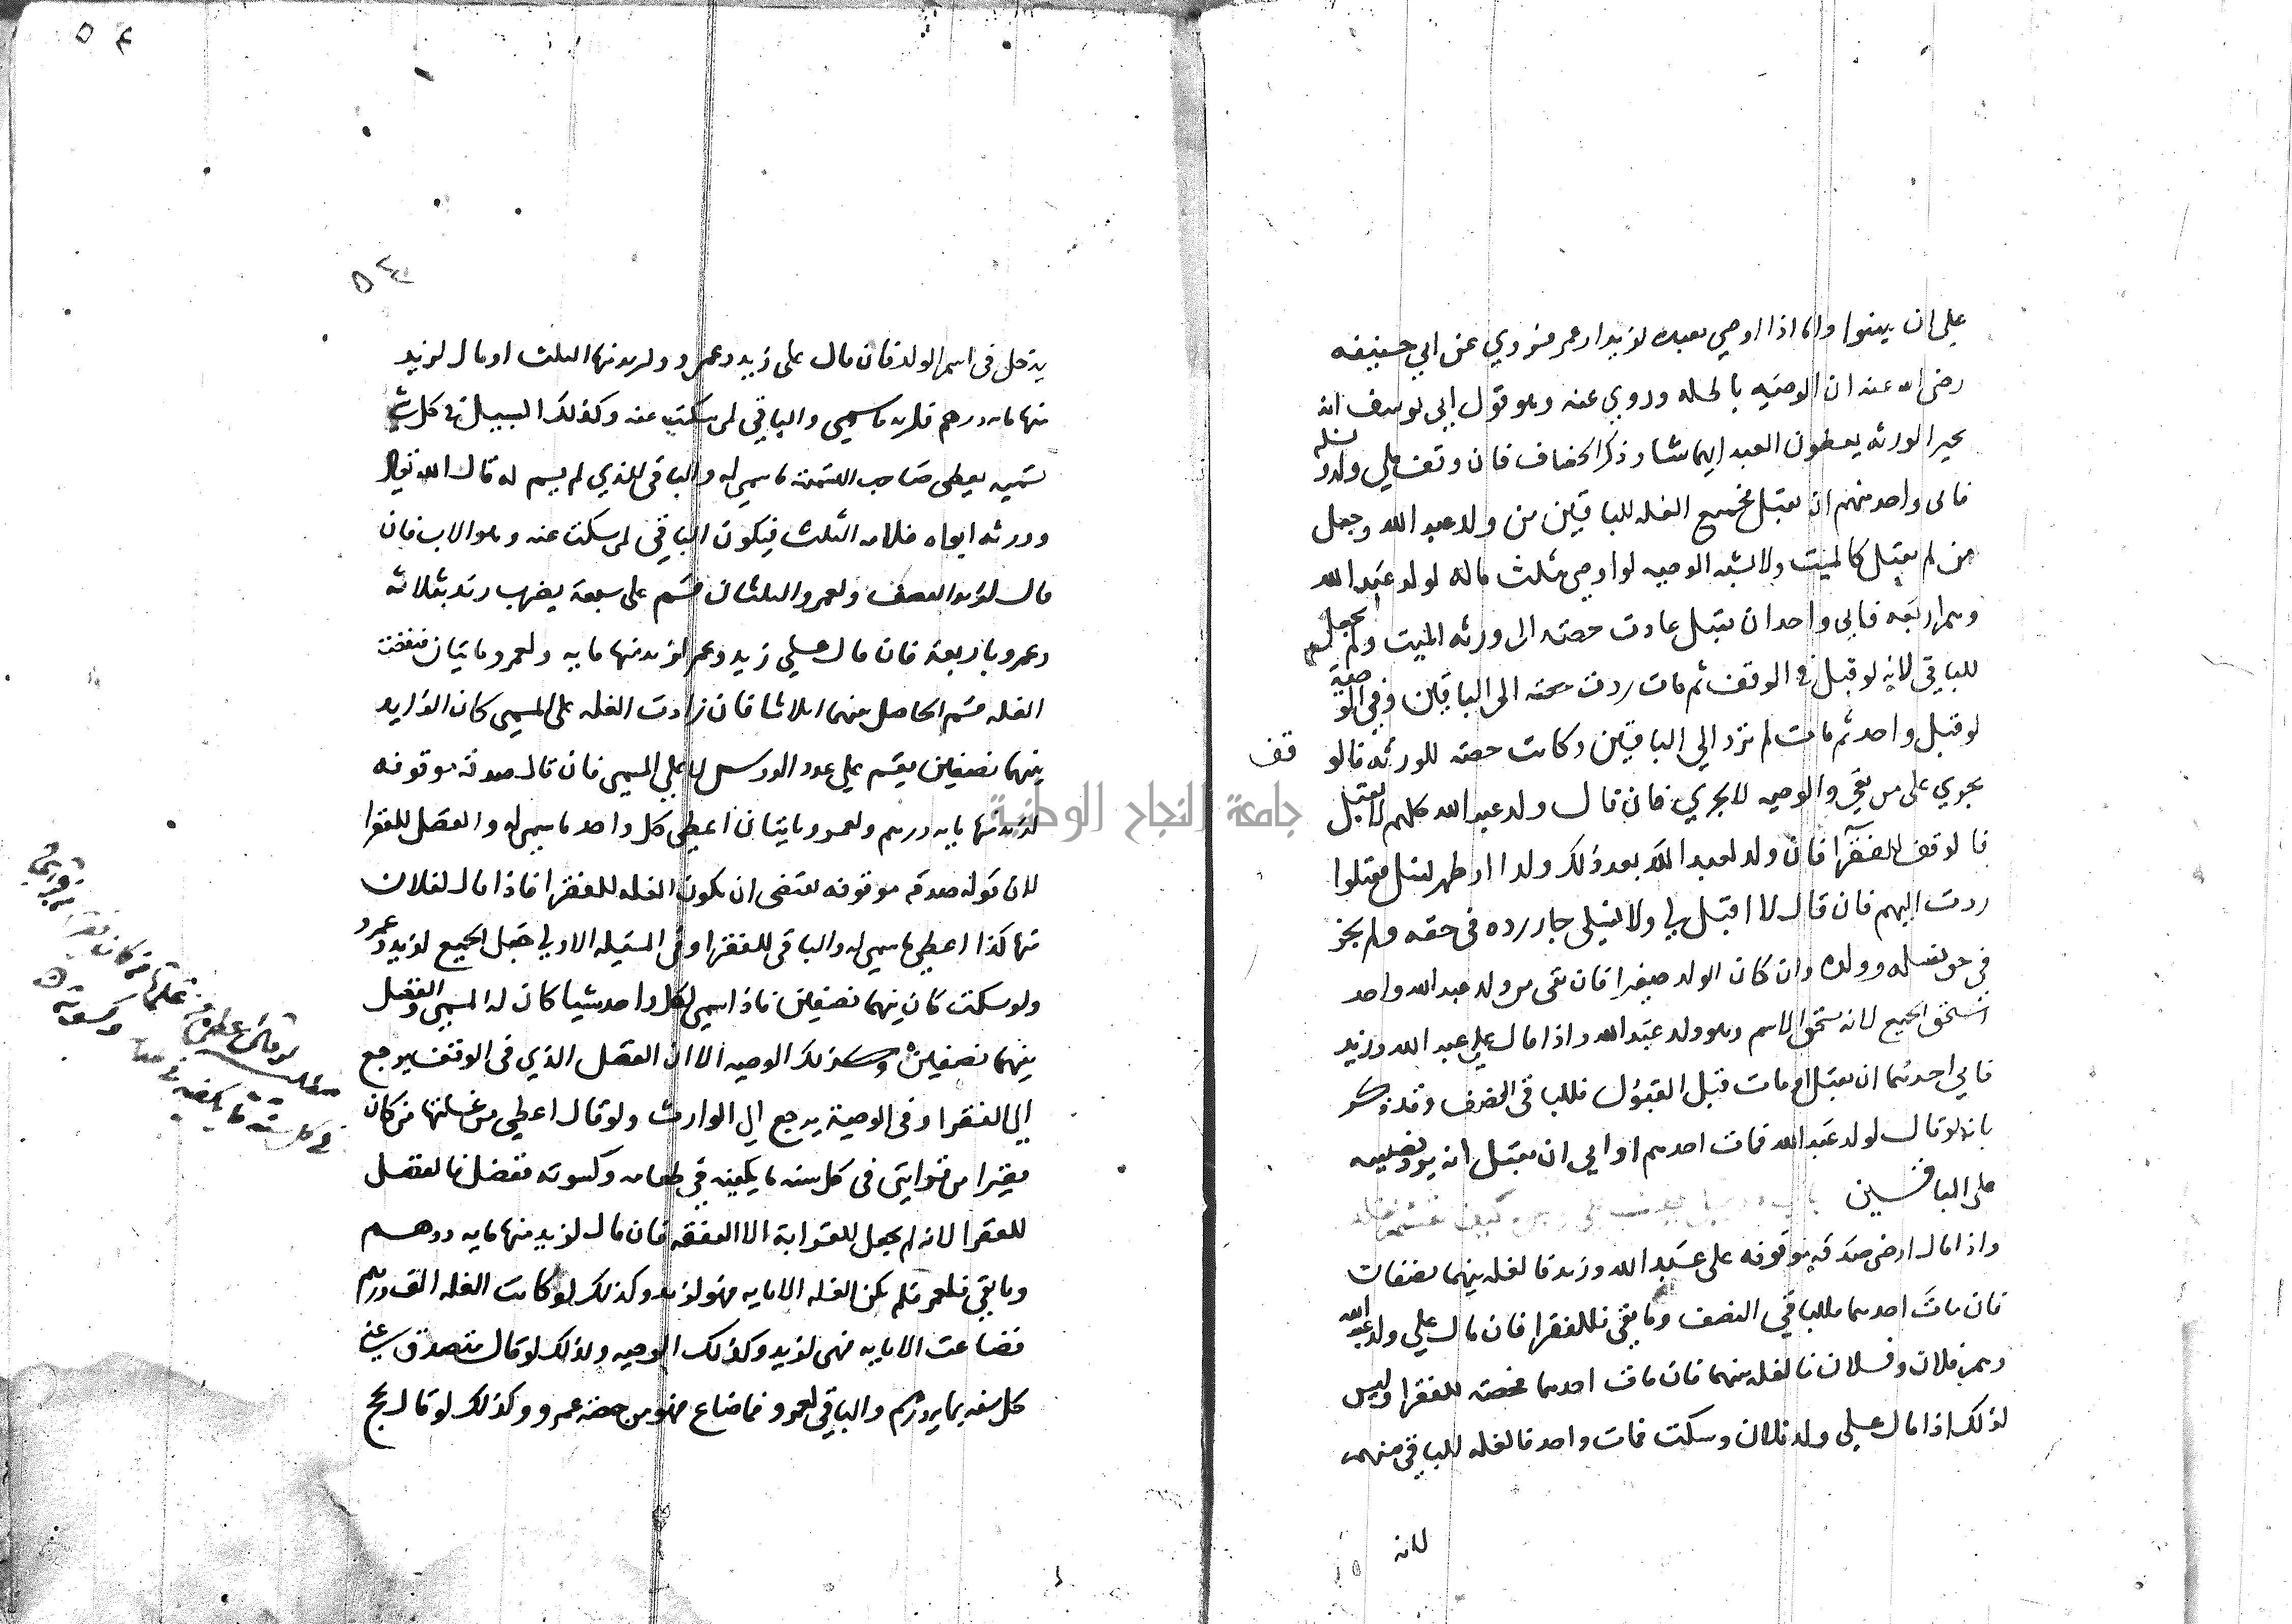 على ان يبينوا واما اذا اوصي بعبده لزيد او عمر فروي عن ابي حنيفه
رضي الله عنه ان الوصيه باطله وروي عنه وهو قول ابي يوسف انه
يخير الورثه يعطون العبد ايهما شا وذكر الخصاف فان وقف علي ولده
فابى واحد منهم ان يقبل فجميع الغله للباقين من ولد عبد الله وجعل
من لم يقبل كالميت ولا يشبه الوصيه لو اوصي بثلث ماله لولد عبد الله
وهم اربعه فابى واحد ان يقبل عادت حصته الى ورثه الميت ولم يجعل
للباقي لانه لو قبل في الوقف ثم مات ردت حصته الى الباقين وفي الوصية
لو قبل واحد ثم مات لم ترد الي الباقين وكانت حصته للورثه قالو
قف
يجري على من بقي والوصيه لا يجري فان قال ولد عبد الله كلهم لا نقبل
فالوقف للفقرا فان ولد لعبد الله بعد ذلك ولدا او ظهر نسل فقبلوا
ردت اليهم فان قال لا اقبل لي ولا لنسلي جاز رده في حقه ولم يجز
في حق نسله وولده وان كان الولد صغيرا فان بقى من ولد عبد الله واحد
استحق الجميع لانه مستحق الاسم وهو ولد عبد الله واذا قال علي عبد الله وزيد
فابي احدهما ان يقبل او مات قبل القبول فللباقي النصف وقد ذكر
بانه لو قال لولد عبد الله فمات احدهم او ابي ان يقبل انه يرد نصيبه
على الباقين
واذا قال ارضي صدقه موقوفه على عبد الله وزيد فالغله بينهما نصفان
فان مات احدهما فللباقي النصف وما بقي فللفقرا فان قال علي ولد عبد الله
وهم فلان وفلان فالغله بينهما فان مات احدهما فحصته للفقرا وليس
لذلك اذا قال علي ولد فلان وسكت فمات واحد فالغله للباقي منهم
لانه
٥٤
٥٤
يدخل في اسم الولد فان قال على زيد وعمرو ولزيد منها الثلث او قال لزيد
منها مايه درهم فلزيد ما سمي والباقي لمن سكت عنه وكذلك السبيل في كل
تسميه يعطى صاحب التسمية ما سمي له والباقي للذي لم يسم له قال الله تعالى
وورثه ابواه فلامه الثلث فيكون الباقي لمن سكت عنه وهو الاب فان
قال لزيد النصف ولعمرو الثلثان قسم على سبعة يضرب زيد بثلاثه
وعمرو باربعة فان قال علي زيد وعمر لزيد منها مايه ولعمرو مايتان فنقصت
الغله قسم الحاصل بينهما اثلاثا فان زادت الغله على المسمي كان الزايد
بينهما نصفين يقسم علي عدد الروس لا علي المسمي فان قال صدقه موقوفه
لزيد منها مايه درهم ولعمرو مايتان اعطي كل واحد ما سمي له والفضل للفقرا
لان قوله صدقه موقوفه يقتضى ان يكون الغله للفقرا فاذا قال لفلان
منها كذا اعطي ما سمي له والباقي للفقرا وفي المسيله الاولي جعل الجميع لزيد وعمرو
ولو سكت كان بينهما نصفين فاذا سمي لكل واحد شيا كان له المسمي والفضل
بينهما نصفين وكذلك الوصيه الا ان الفضل الذي في الوقف يرجع
الي الفقرا وفي الوصية يرجع الي الوارث ولو قال اعطي من غلتها من كان
فقيرا من قرابتي في كل سنه ما يكفيه في طعامه وكسوته ففضل فالفضل
للفقرا لانه لم يجعل للقرابة الا النفقه فان قال لزيد منها مايه درهم
وما بقي فلعمر فلم يكن الغله الا مايه فهو لزيد وكذلك لو كانت الغله الف درهم
فضاعت الا مايه فهي لزيد وكذلك الوصيه وكذلك لو قال يتصدق عني
كل سنه بمايه درهم والباقي لعمرو فما ضاع فهو من حصه عمرو وكذلك لو قال يحج
من غلتها من كان فقيرا من قرابتي
في كل سنه ما يكفيه في وكسوته
جامعة النجاح الوطنية